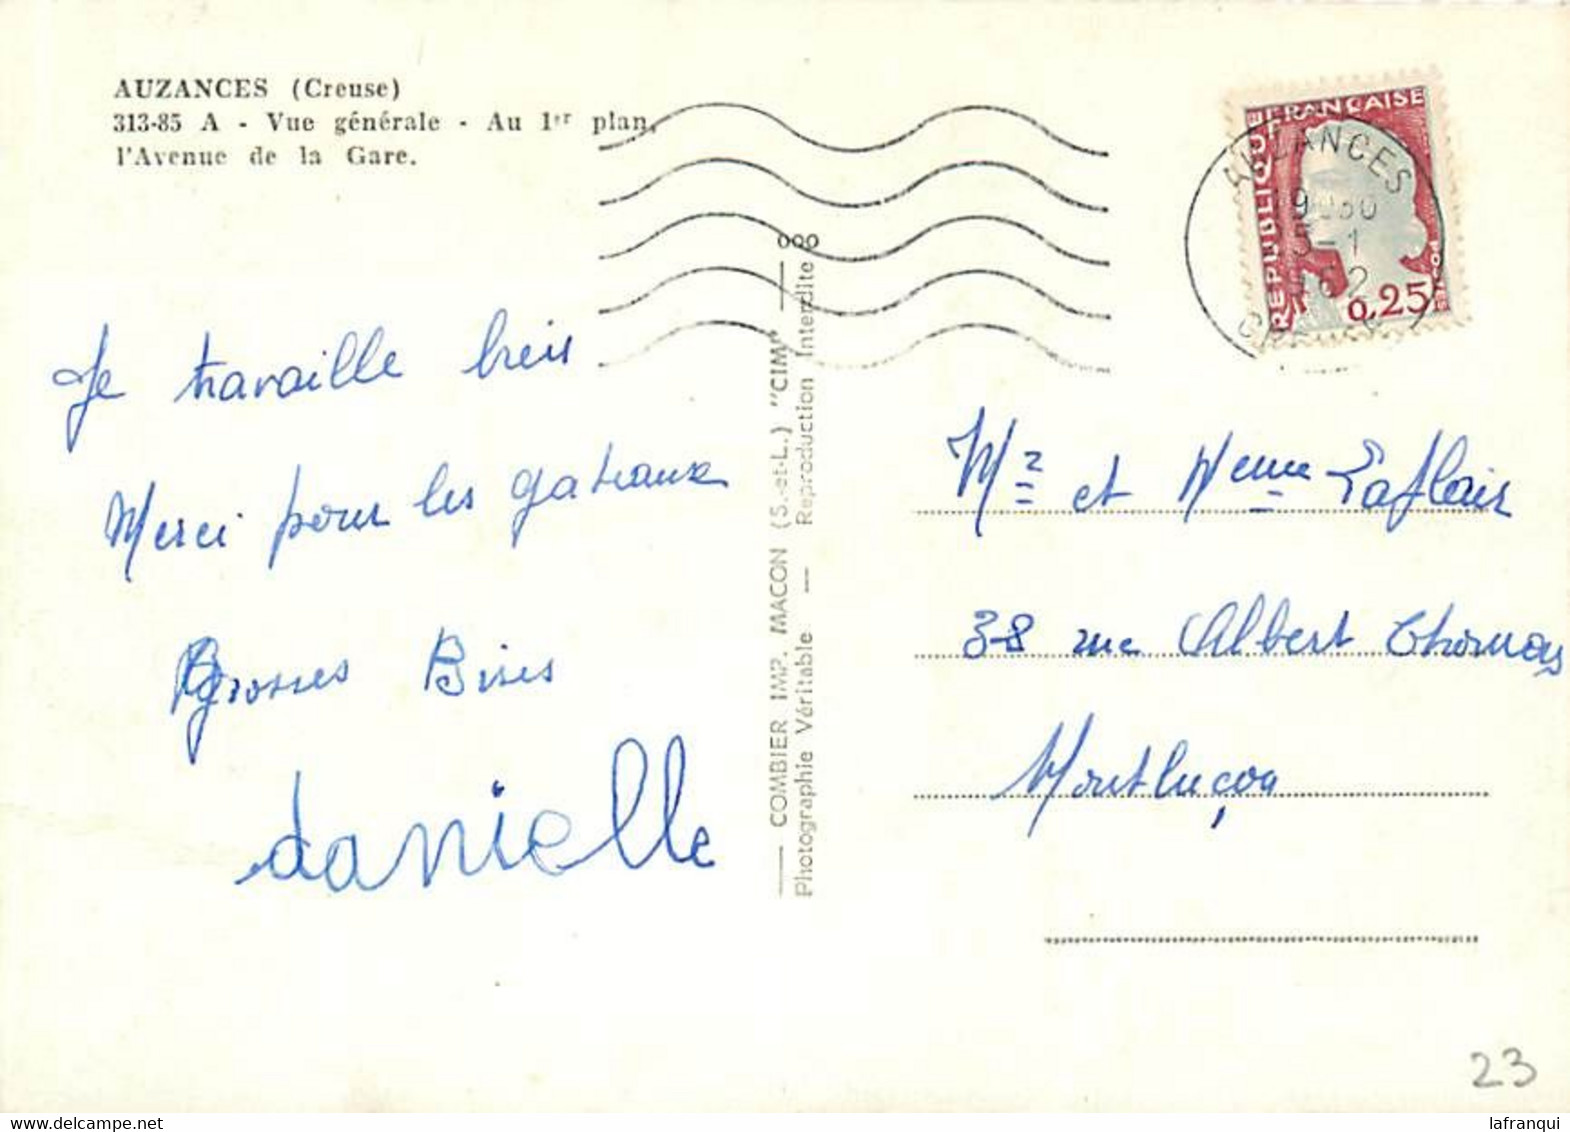 AUZANCES (Creuse)
313-85 A - Vue générale - Au 1er plan,
l'Avenue de la Gare.
Je travaille bien
Merci pour les gateaux
Grosses Bises
danielle
COMBIER IMP. MACON (S.-et-L.) "CIM"
Photographie Véritable — Reproduction Interdite
REPUBLIQUE FRANÇAISE
POSTES
0,25
AUZANCES
5-1
Mr et Meme Laflais
38 rue Albert Thomas
Montluçon
23
lafranqui